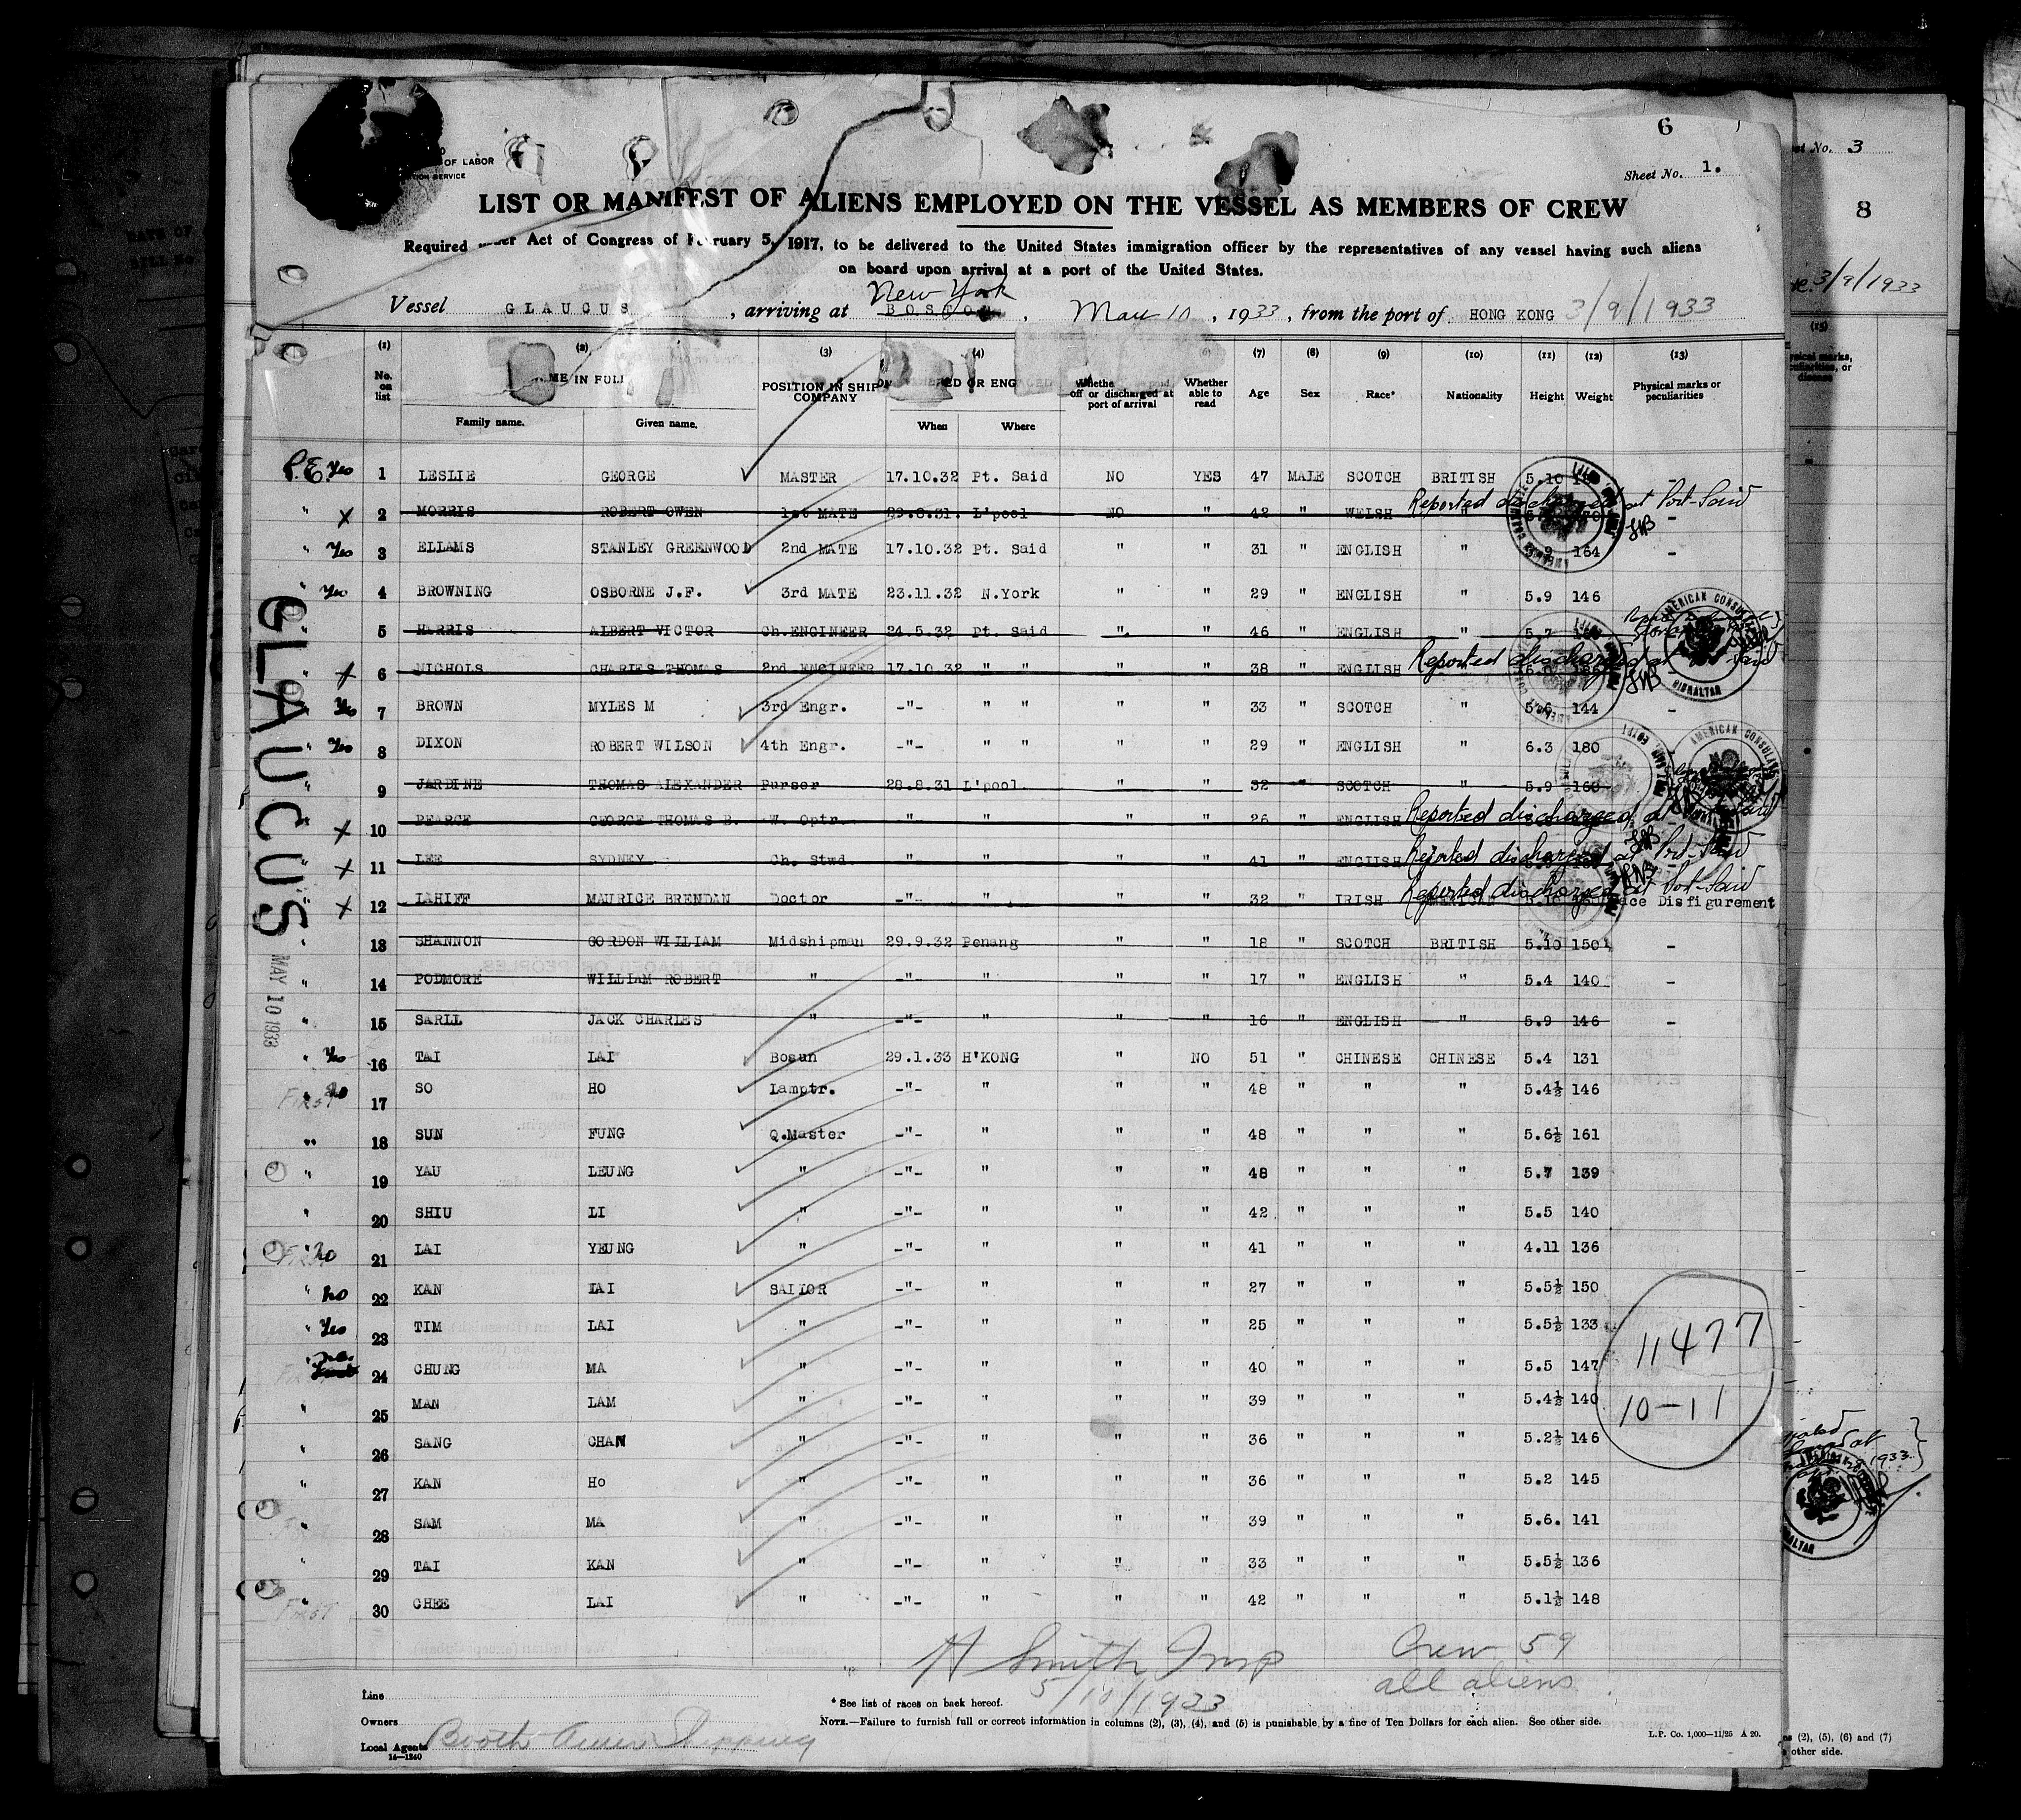 6
OF LABOR
Sheet No. 1.
LIST OR MANIFEST OF ALIENS EMPLOYED ON THE VESSEL AS MEMBERS OF CREW
Required Act of Congress of February 5, 1917, to be delivered to the United States immigration officer by the representatives of any vessel having such aliens
on board upon arrival at a port of the United States.
New York
Vessel GLAUCUS, arriving at BOSTON, May 10, 1933, from the port of HONG KONG 3/9/1933
(1) (2) (3) (4) (6) (7) (8) (9) (10) (11) (12) (13)
No. on list NAME IN FULL Family name. Given name. POSITION IN SHIP COMPANY OR ENGAGED When Where Whether off or discharged at port of arrival Whether able to read Age Sex Race* Nationality Height Weight Physical marks or peculiarities
P.E. Yes 1 LESLIE GEORGE MASTER 17.10.32 Pt. Said NO YES 47 MALE SCOTCH BRITISH 5.10
" x 2 MORRIS ROBERT OWEN 1st MATE 29.8.31. L'pool NO " 42 " WELSH " Reported discharged at Port-Said -
" Yes 3 ELLAMS STANLEY GREENWOOD 2nd MATE 17.10.32 Pt. Said " " 31 " ENGLISH " 9 164 -
" Yes 4 BROWNING OSBORNE J.F. 3rd MATE 23.11.32 N.York " " 29 " ENGLISH " 5.9 146
" 5 HARRIS ALBERT VICTOR Ch.ENGINEER 24.5.32 Pt. Said " " 46 " ENGLISH " 5.7
" x 6 NICHOLS CHARLES THOMAS 2nd ENGINEER 17.10.32 " " " " 38 " ENGLISH Reported discharged at Port Said
" Yes 7 BROWN MYLES M 3rd Engr. -"- " " " " 33 " SCOTCH " 5.6 144 -
" Yes 8 DIXON ROBERT WILSON 4th Engr. -"- " " " " 29 " ENGLISH " 6.3 180 -
" 9 JARDINE THOMAS ALEXANDER Purser 28.8.31 L'pool " " 32 " SCOTCH " 5.9 160
" x 10 PEARCE GEORGE THOMAS B. W. Optr. " " " " 26 " ENGLISH Reported discharged at Port Said
" x 11 LEE SYDNEY Ch. Stwd. -"- " " " 41 " ENGLISH Reported discharged at Port-Said
" x 12 LAHIFF MAURICE BRENDAN Doctor -"- " " " 32 " IRISH Reported discharged at Port-Said Face Disfigurement
" 13 SHANNON GORDON WILLIAM Midshipman 29.9.32 Penang " " 18 " SCOTCH BRITISH 5.10 150 -
" 14 PODMORE WILLIAM ROBERT " -"- " " " 17 " ENGLISH " 5.4 140 -
" 15 SARLL JACK CHARLES " -"- " " " 16 " ENGLISH " 5.9 146 -
" Yes 16 TAI LAI Bosun 29.1.33 H'KONG " NO 51 " CHINESE CHINESE 5.4 131
First " no 17 SO HO Lamptr. -"- " " " 48 " " " 5.4½ 146
" 18 SUN FUNG Q.Master -"- " " " 48 " " " 5.6½ 161
" 19 YAU LEUNG " -"- " " " 48 " " " 5.7 139
" 20 SHIU LI " -"- " " " 42 " " " 5.5 140
First " no 21 LAI YEUNG " -"- " " " 41 " " " 4.11 136
" no 22 KAN LAI SAILOR -"- " " " 27 " " " 5.5½ 150
" Yes 23 TIM LAI " -"- " " " 25 " " " 5.5½ 133
" 24 CHUNG MA " -"- " " " 40 " " " 5.5 147
" 25 MAN LAM " -"- " " " 39 " " " 5.4½ 140
" 26 SANG CHAN " -"- " " " 36 " " " 5.2½ 146
" 27 KAN Ho " -"- " " " 36 " " " 5.2 145
" 28 SAM MA " -"- " " " 39 " " " 5.6. 141
" 29 TAI KAN " -"- " " " 33 " " " 5.5½ 136
First " 30 CHEE LAI " -"- " " " 42 " " " 5.1½ 148
GLAUCUS MAY 10 1933
AMERICAN CONSULATE
GIBRALTAR
11477
10-11
H Smith Insp
5/10/1933
Crew 59
all aliens
Line
Owners
Local Agents Booth Amer Shipping
14-1240
* See list of races on back hereof.
NOTE.—Failure to furnish full or correct information in columns (2), (3), (4), and (5) is punishable by a fine of Ten Dollars for each alien. See other side.
L.P. Co. 1,000-11/25 A 20.
No. 3
8
3/9/1933
(13)
(2), (5), (6) and (7)
other side.